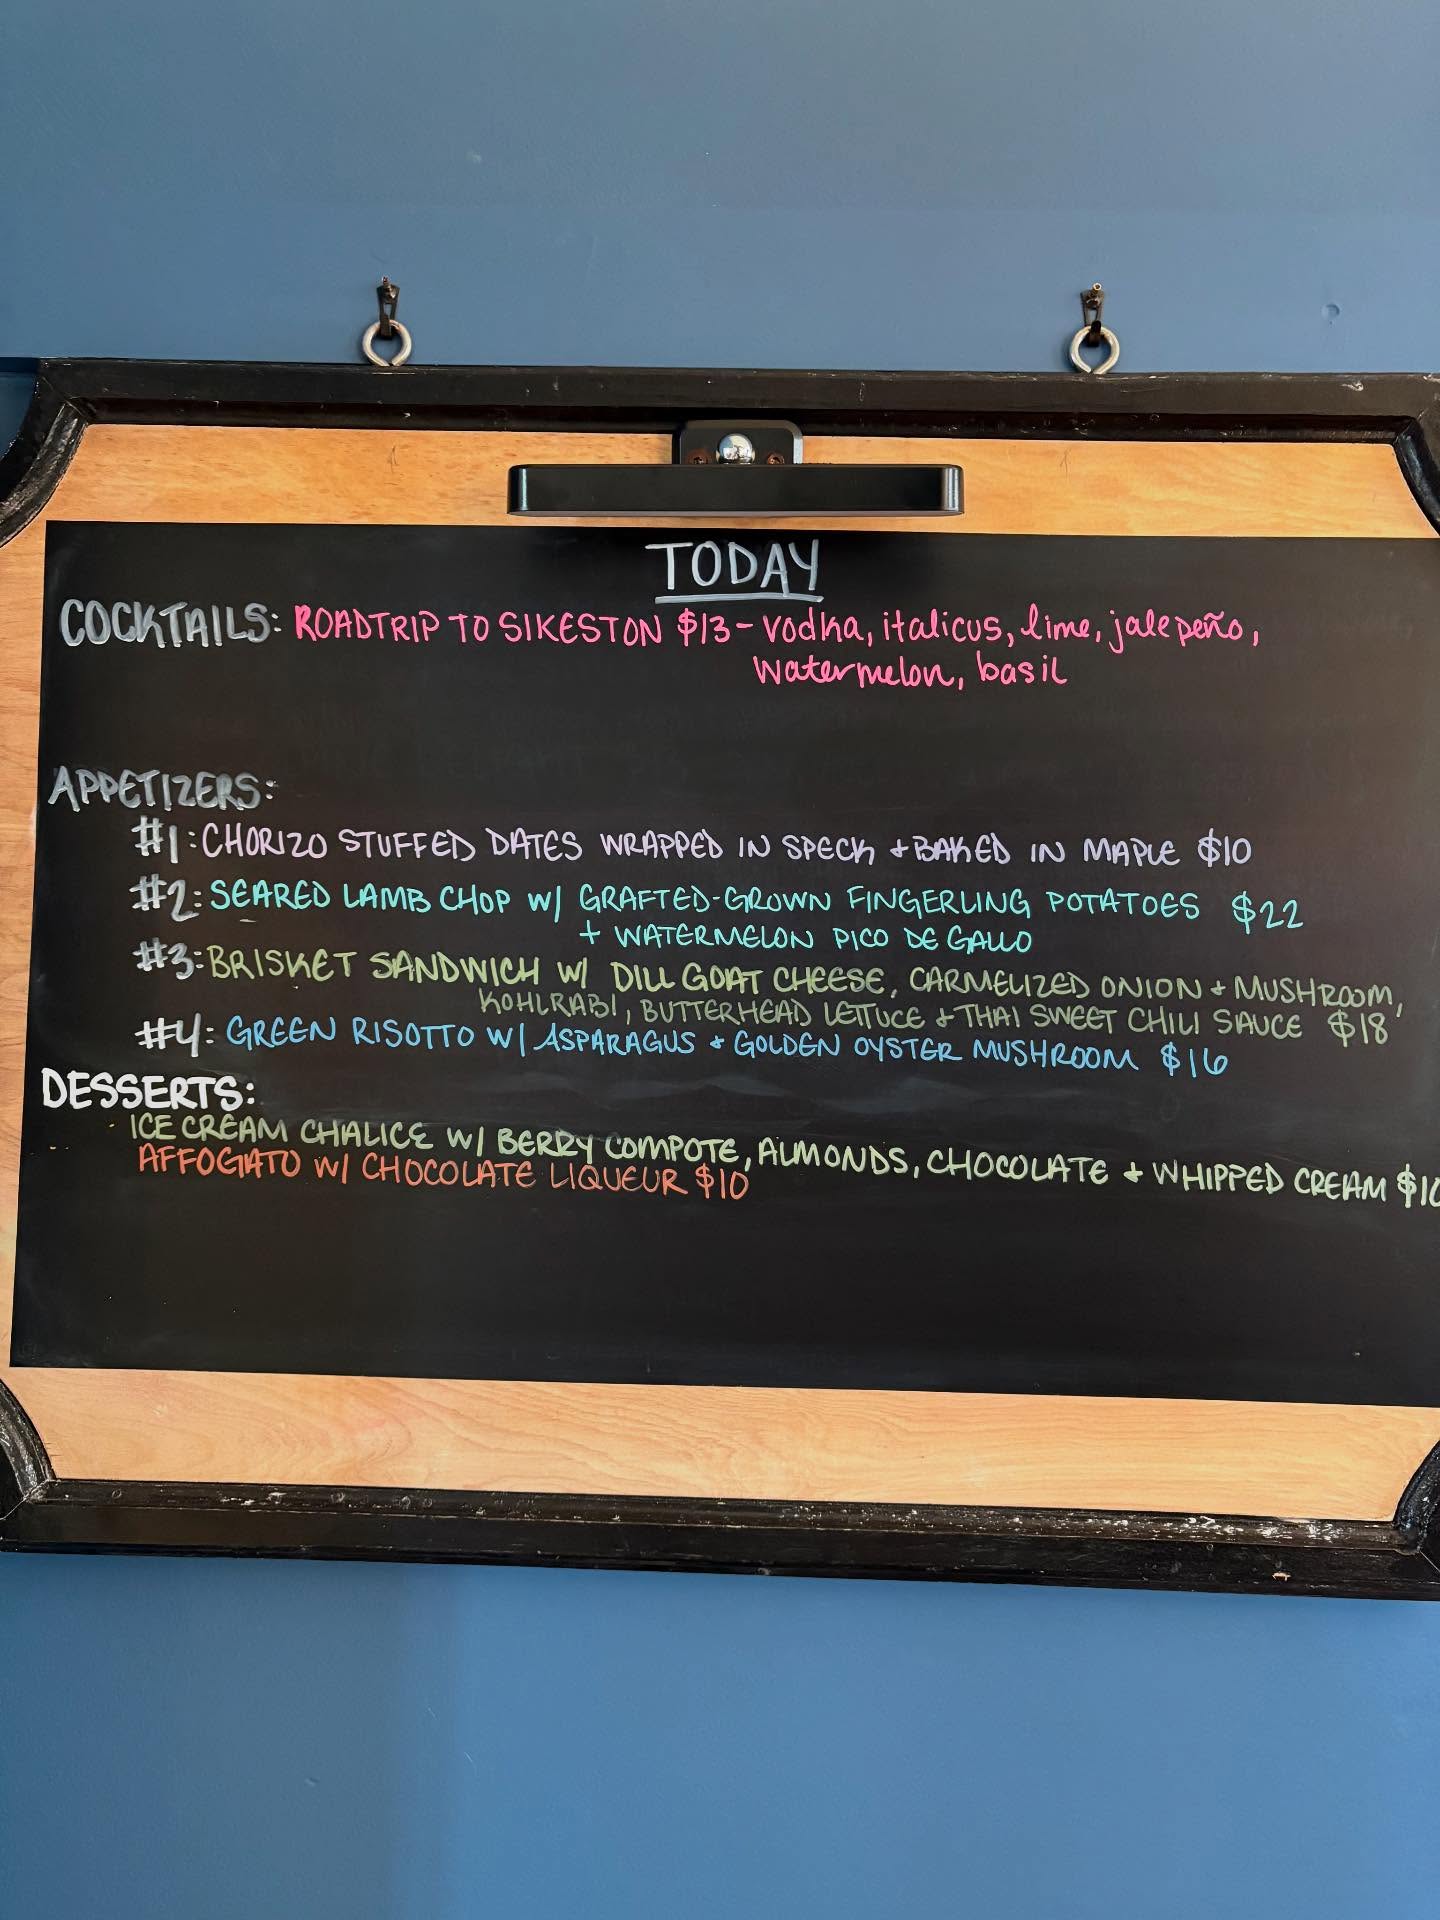 TODAY
COCKTAILS: ROADTRIP TO SIKESTON $13 - vodka, italicus, lime, jalepeño,
watermelon, basil
APPETIZERS:
#1: CHORIZO STUFFED DATES WRAPPED IN SPECK + BAKED IN MAPLE $10
#2: SEARED LAMB CHOP W/ GRAFTED-GROWN FINGERLING POTATOES $22
+ WATERMELON PICO DE GALLO
#3: BRISKET SANDWICH W/ DILL GOAT CHEESE, CARMELIZED ONION + MUSHROOM,
KOHLRABI, BUTTERHEAD LETTUCE + THAI SWEET CHILI SAUCE $18
#4: GREEN RISOTTO W/ ASPARAGUS + GOLDEN OYSTER MUSHROOM $16
DESSERTS:
ICE CREAM CHALICE W/ BERRY COMPOTE, ALMONDS, CHOCOLATE + WHIPPED CREAM $10
AFFOGATO W/ CHOCOLATE LIQUEUR $10